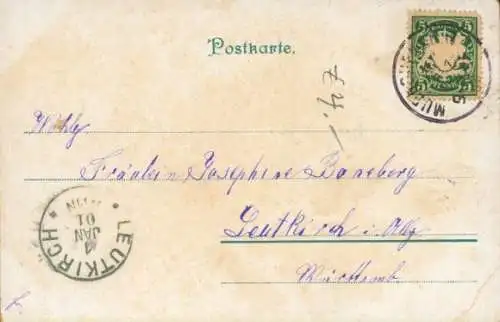 Postkarte.
5 5
5 5
Wohlg.
Fräulein Josephine
Leutkirch i. Allg
Württemb.
LEUTKIRCH
JAN
01